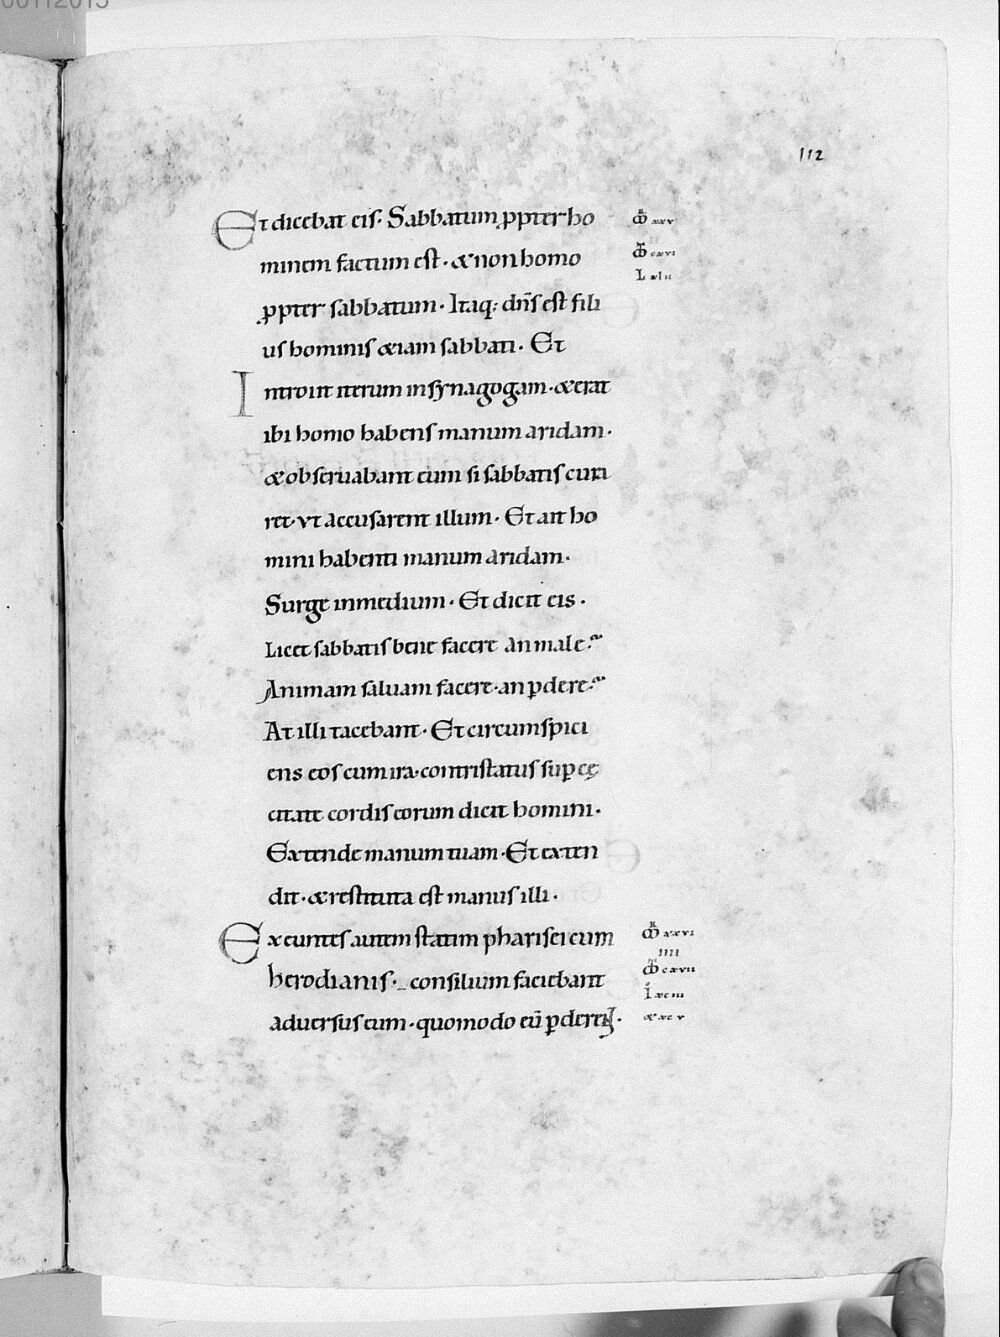 00112015
112
Et dicebat eis· Sabbatum ꝓpter ho
minem factum est· & non homo
ꝓpter sabbatum· Itaq; dn̄s est fili
us hominis &iam sabbati· Et
Introiit iterum in synagogam· & erat
ibi homo habens manum aridam·
& obseruabant eum si sabbatis cura
ret· vt accusarent illum· Et ait ho
mini habenti manum aridam·
Surge in medium· Et dicit eis·
Licet sabbatis bene facere an male?
Animam saluam facere· an ꝑdere?
At illi tacebant· Et circumspici
ens eos cum ira· contristatus suꝑ cę
citate cordis eorum dicit homini·
Extende manum tuam· Et exten
dit· & restituta est manus illi·
Exeuntes autem statim pharisei cum
herodianis· consilium faciebant
aduersus eum· quomodo eū ꝑderent·